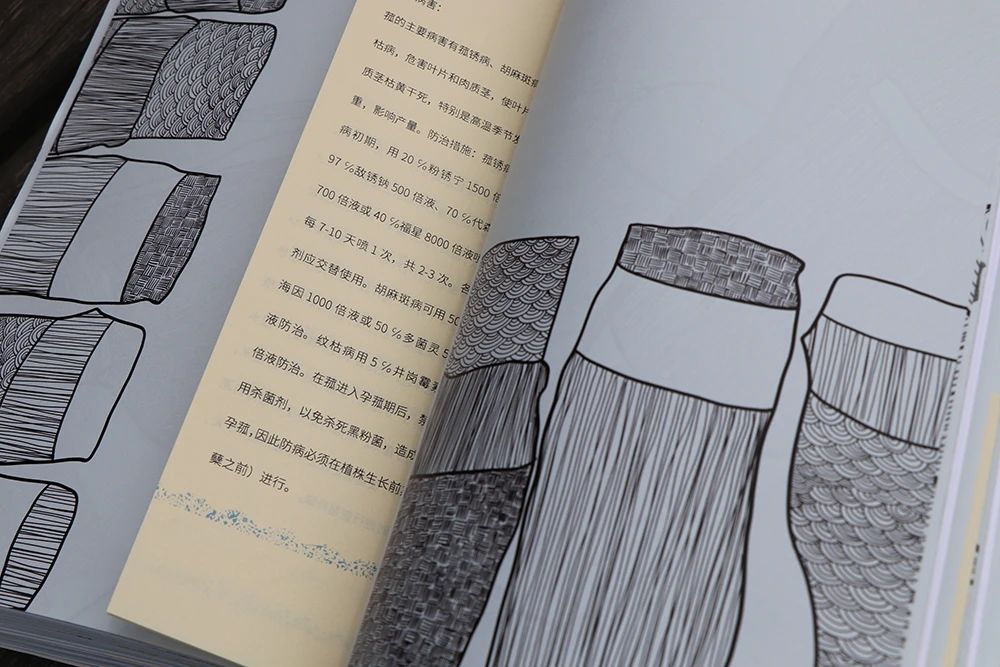 病害：
菰的主要病害有菰锈病、胡麻斑
枯病，危害叶片和肉质茎，使叶片
质茎枯黄干死，特别是高温季节发
重，影响产量。防治措施：菰锈病
病初期，用 20 %粉锈宁 1500 倍
97 %敌锈钠 500 倍液、70 %代
700 倍液或 40 %福星 8000 倍液
每 7-10 天喷 1 次，共 2-3 次。各
剂应交替使用。胡麻斑病可用 50
海因 1000 倍液或 50 %多菌灵 5
液防治。纹枯病用 5 %井岗霉
倍液防治。在菰进入孕菰期后，禁
用杀菌剂，以免杀死黑粉菌，造成
孕菰，因此防病必须在植株生长前
蘖之前）进行。